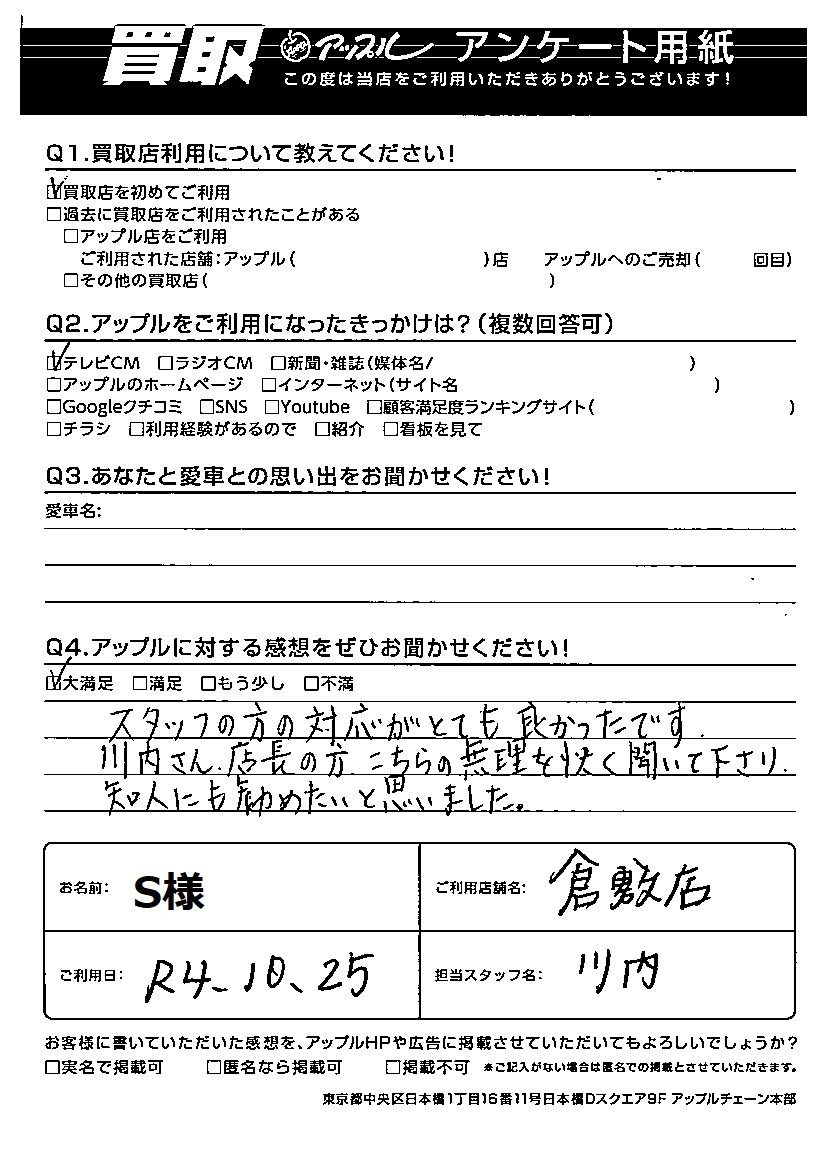 買取 アップル アンケート用紙
この度は当店をご利用いただきありがとうございます!
Q1.買取店利用について教えてください!
☑買取店を初めてご利用
□過去に買取店をご利用されたことがある
□アップル店をご利用
ご利用された店舗:アップル( )店 アップルへのご売却( 回目)
□その他の買取店( )
Q2.アップルをご利用になったきっかけは?(複数回答可)
☑テレビCM □ラジオCM □新聞・雑誌(媒体名/ )
□アップルのホームページ □インターネット(サイト名 )
□Googleクチコミ □SNS □Youtube □顧客満足度ランキングサイト( )
□チラシ □利用経験があるので □紹介 □看板を見て
Q3.あなたと愛車との思い出をお聞かせください!
愛車名:
Q4.アップルに対する感想をぜひお聞かせください!
☑大満足 □満足 □もう少し □不満
スタッフの方の対応がとても良かったです.
川内さん.店長の方.こちらの無理を快く聞いて下さり.
知人にも勧めたいと思いました。
お名前: S様 ご利用店舗名: 倉敷店
ご利用日: R4.10.25 担当スタッフ名: 川内
お客様に書いていただいた感想を、アップルHPや広告に掲載させていただいてもよろしいでしょうか?
□実名で掲載可 □匿名なら掲載可 □掲載不可 ※ご記入がない場合は匿名での掲載とさせていただきます。
東京都中央区日本橋1丁目16番11号日本橋Dスクエア9F アップルチェーン本部